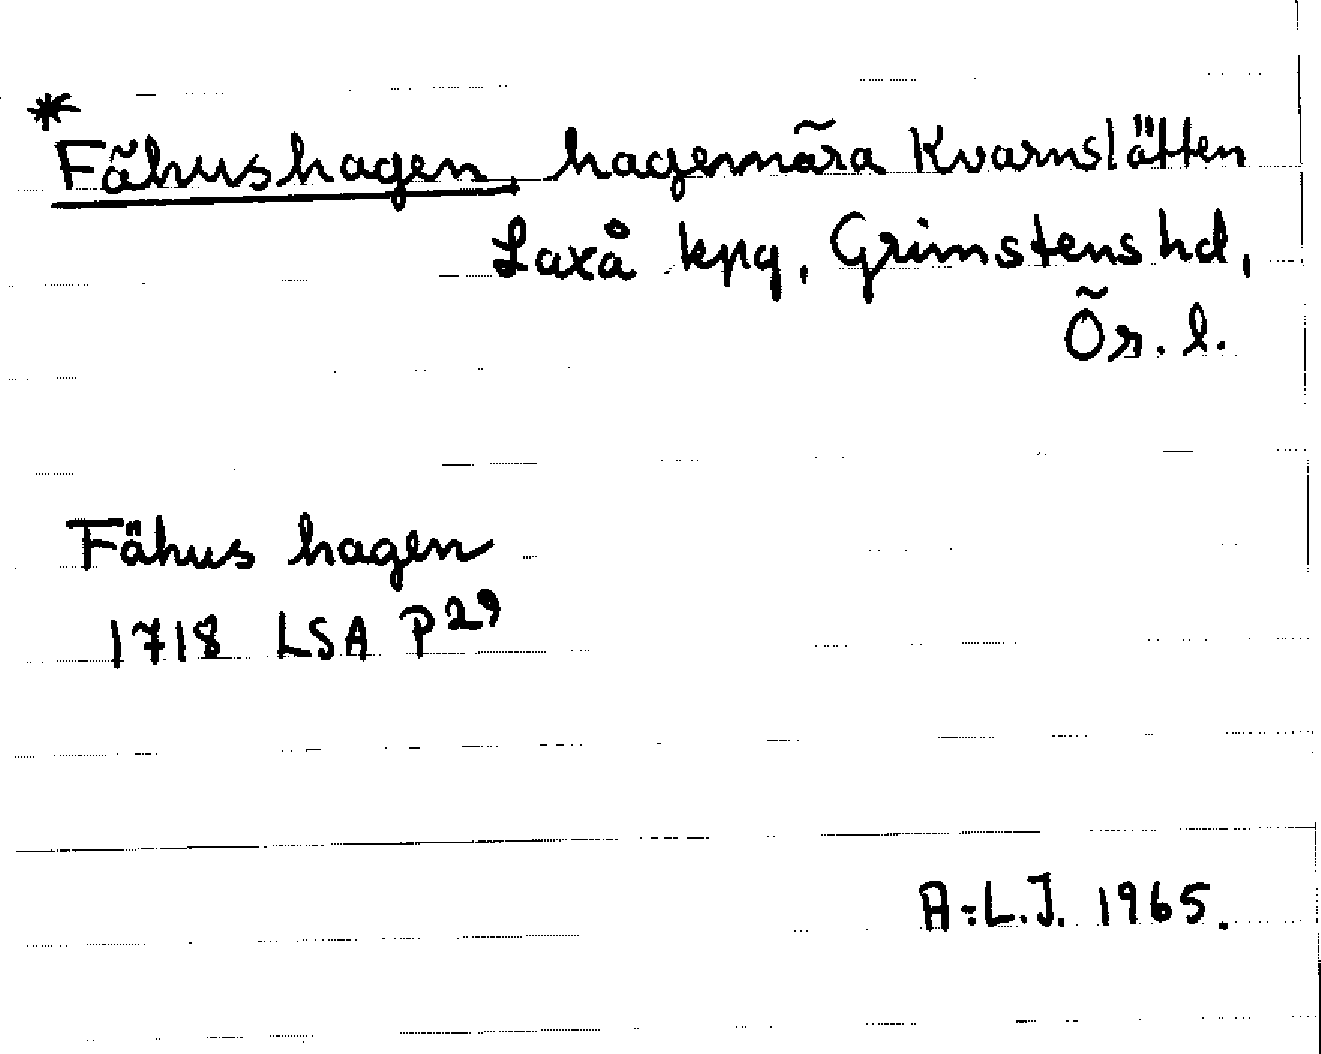 *Fähushagen, hage nära Kvarnslätten
Laxå kpg, Grimstens hd,
Ör. l.
Fähus hagen
1718 LSA P 29
A-L.J. 1965.